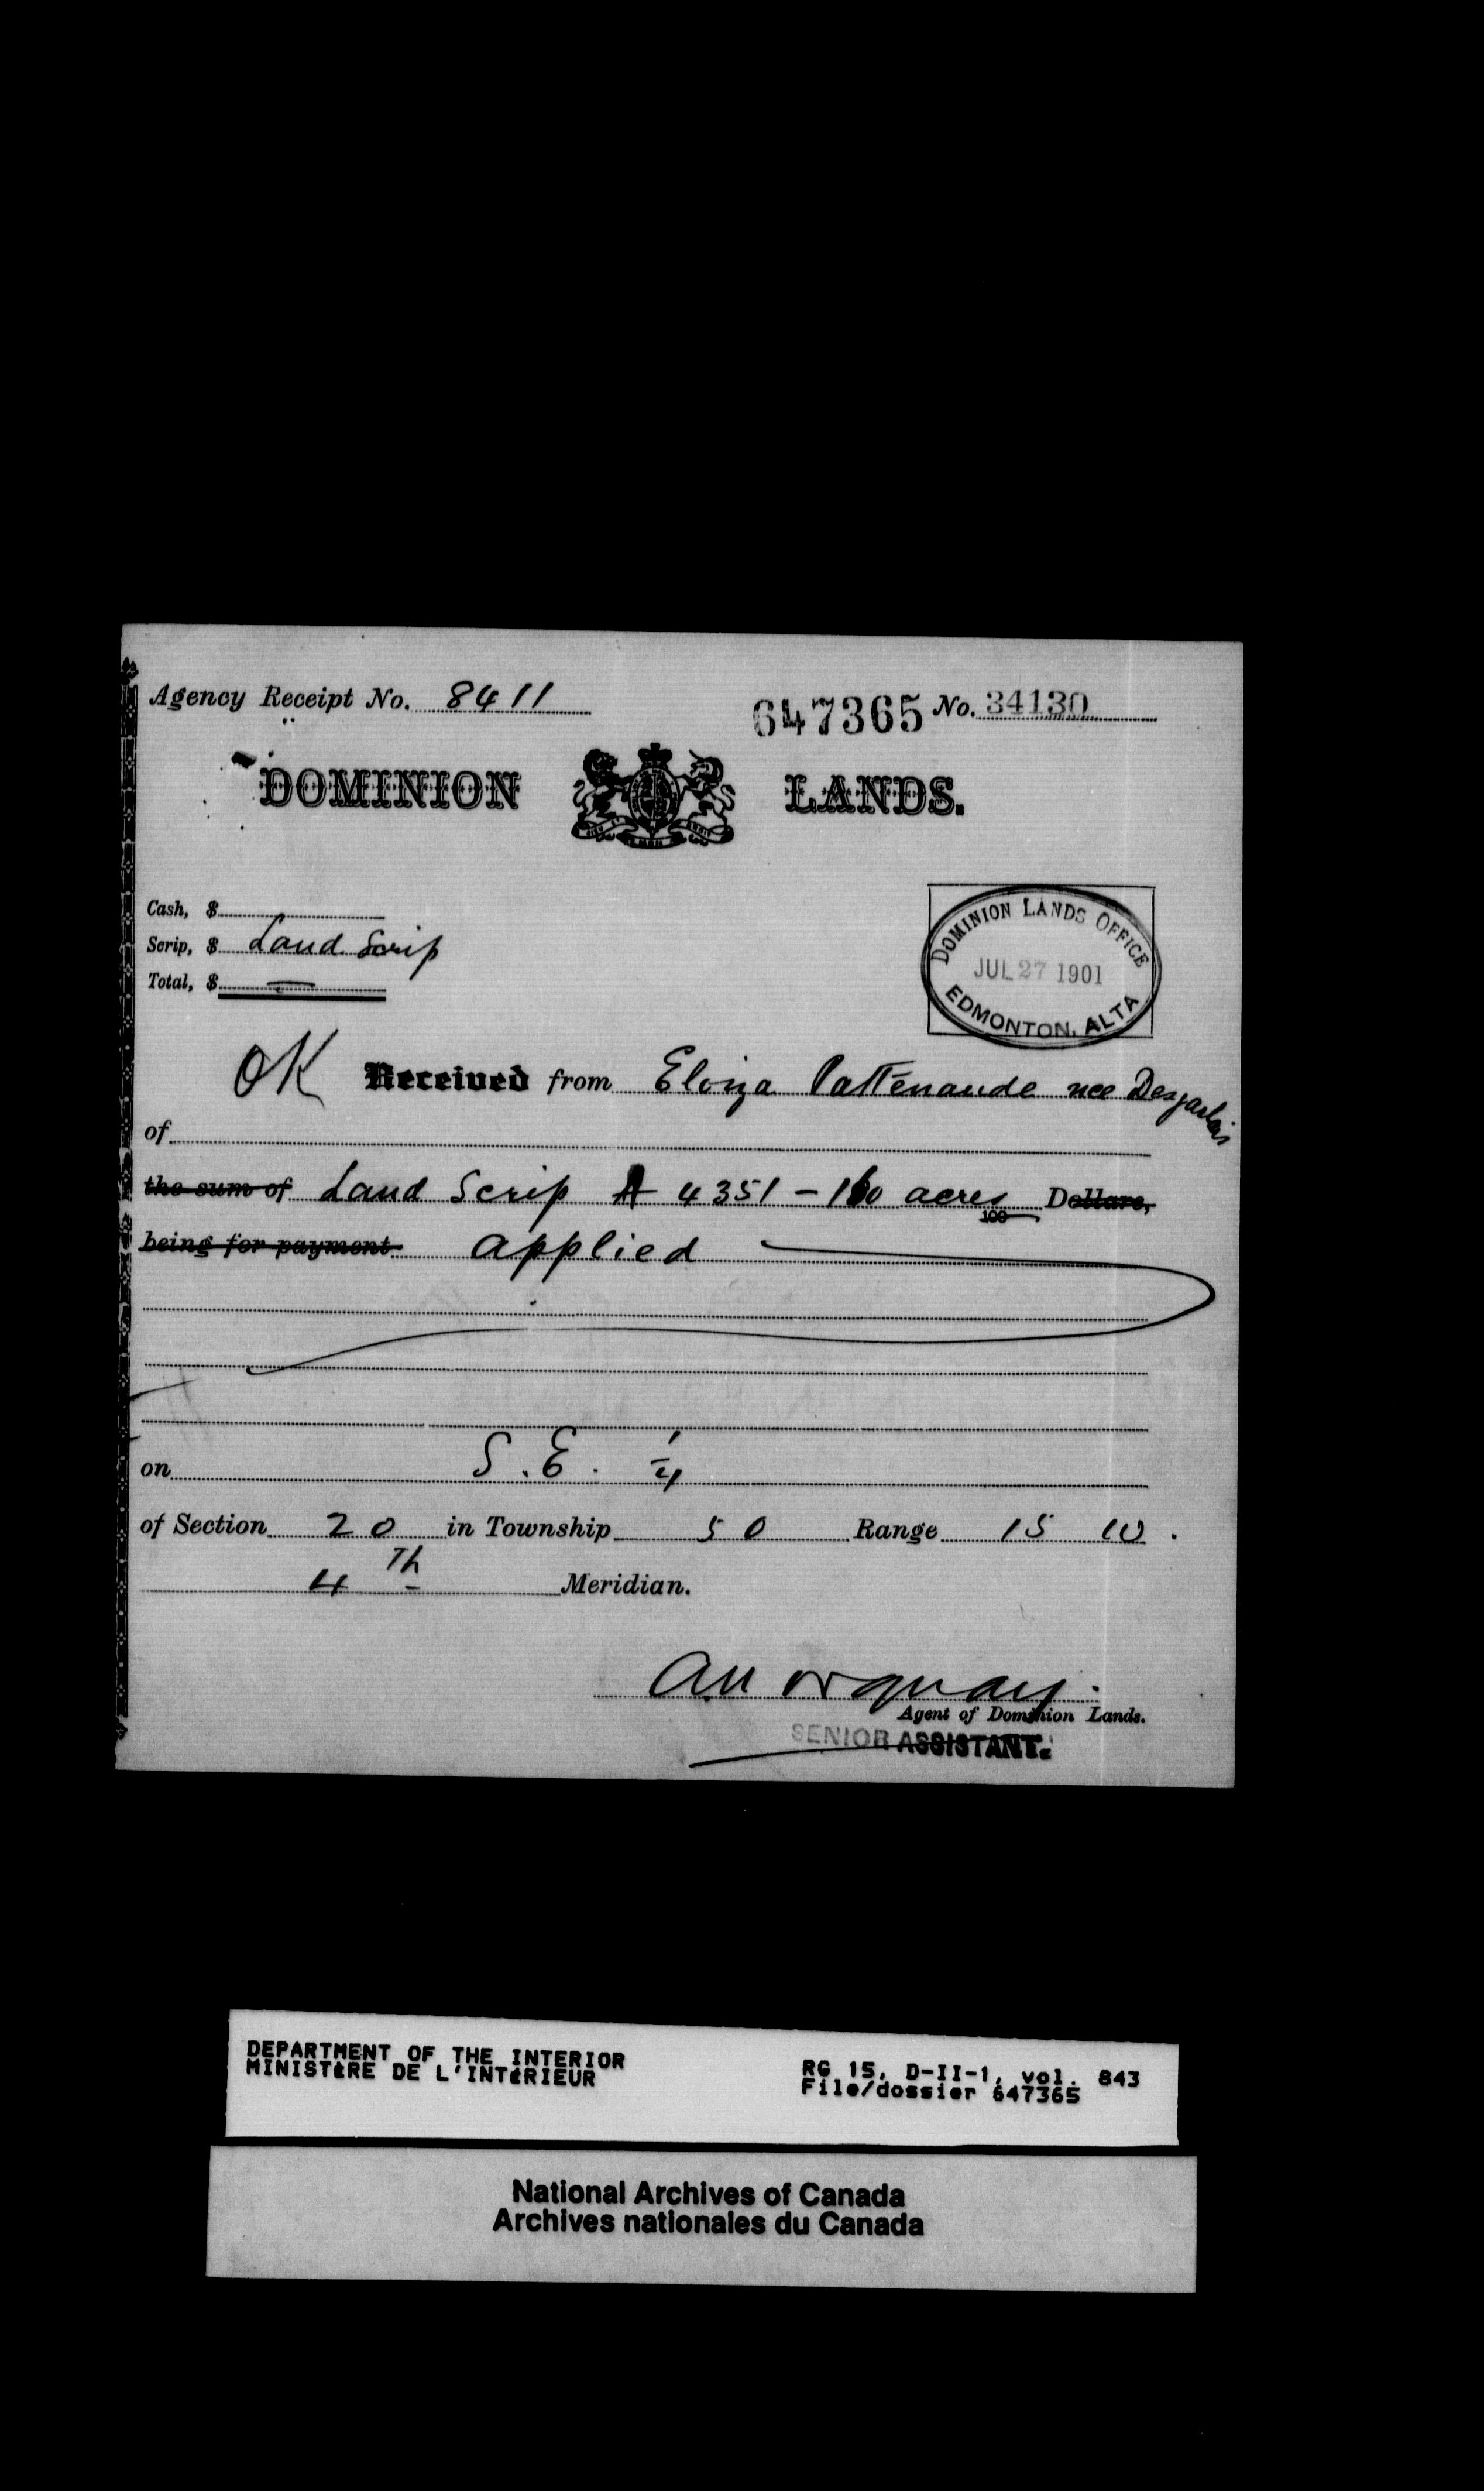 Agency Receipt No. 8411
647365 No. 34130
DOMINION LANDS.
DIEU ET MON DROIT
Cash, $
Scrip, $ Land Scrip
Total, $ —
DOMINION LANDS OFFICE
JUL 27 1901
EDMONTON, ALTA
OK Received from Eloiza Pattenaude nee Desjarlais
of
the sum of Land Scrip A 4351 – 160 acres 100 Dollars,
being for payment applied
on S.E. 1/4
of Section 20 in Township 50 Range 15 W.
4 Th Meridian.
Agent of Dominion Lands.
SENIOR ASSISTANT.
DEPARTMENT OF THE INTERIOR
MINISTÈRE DE L'INTÉRIEUR
RG 15, D-II-1, vol. 843
File/dossier 647365
National Archives of Canada
Archives nationales du Canada